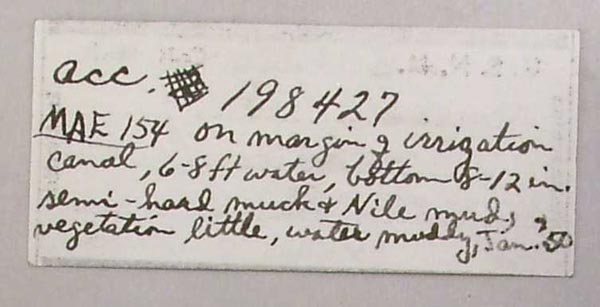 acc. 198427
MAE 154 on margin of irrigation
canal, 6-8 ft water, bottom 8-12 in.
semi-hard muck & Nile mud,
vegetation little, water muddy, Jan. '50